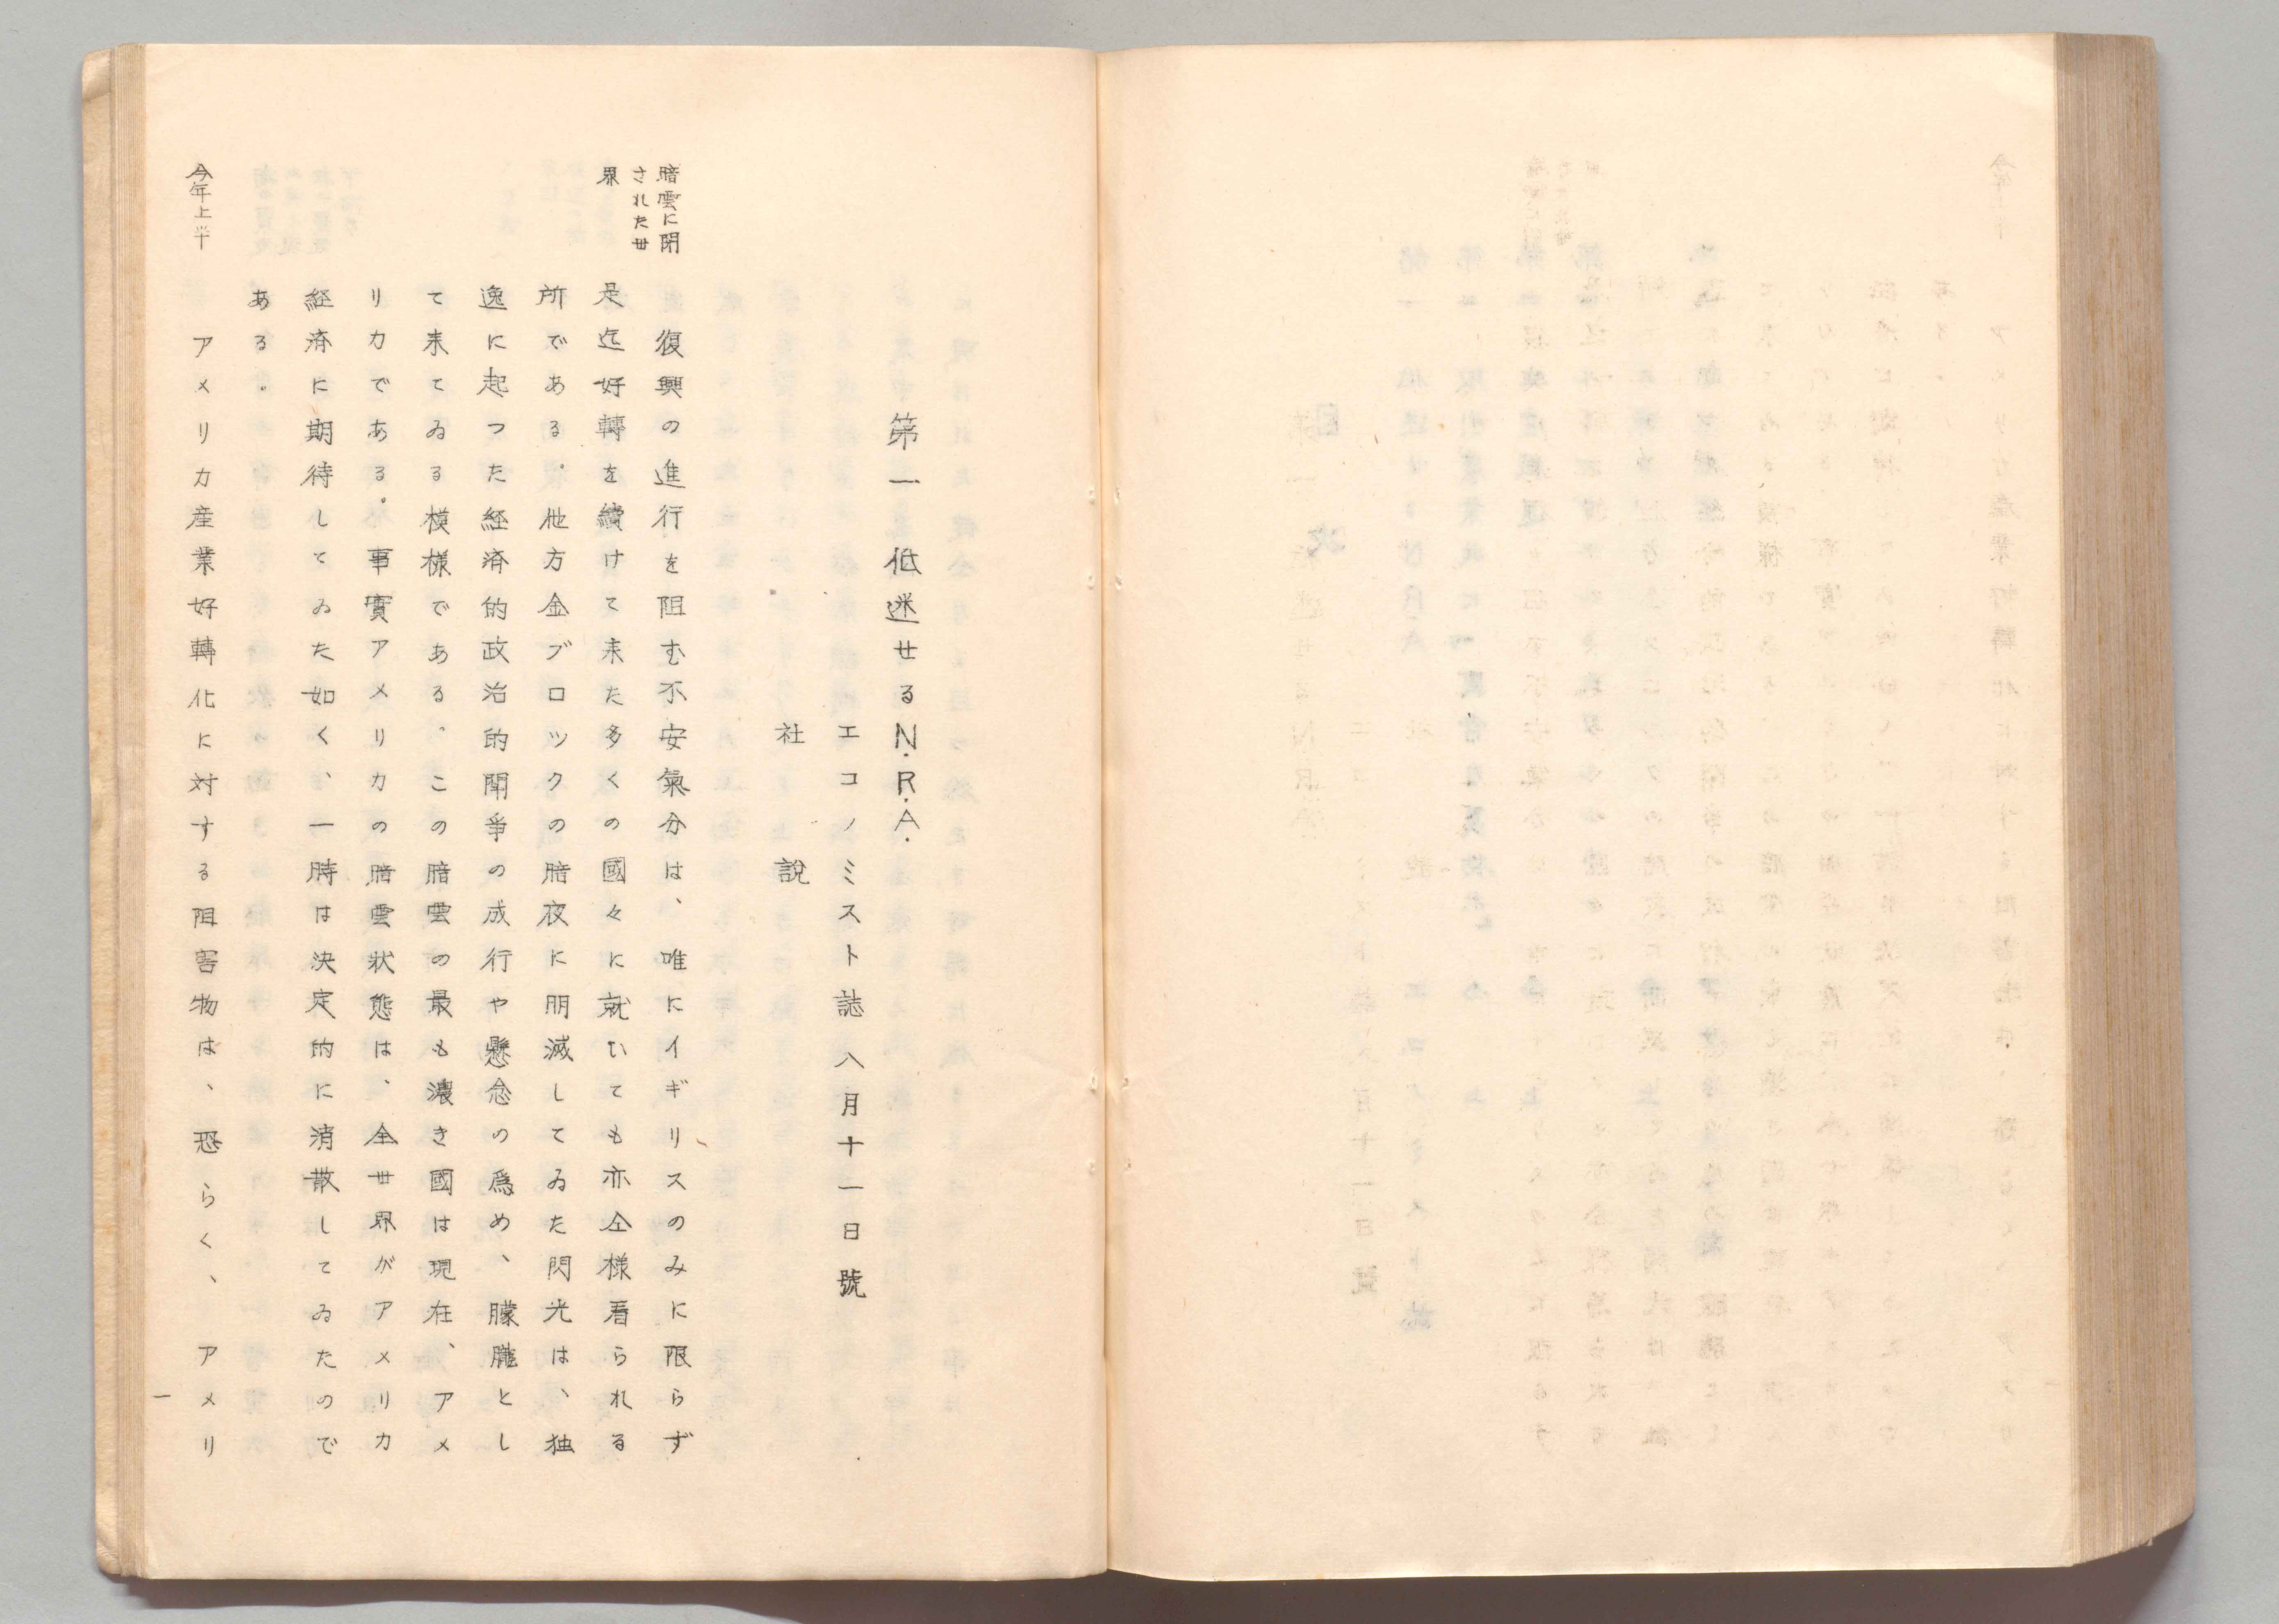 第一 低迷せるN.R.A.
エコノミスト誌八月十一日號
社説
暗雲に閉
された世
界
復興の進行を阻む不安氣分は、唯にイギリスのみに限らず
是迄好轉を續けて来た多くの國々に就いても亦仝様看られる
所である。他方金ブロックの暗夜に明滅してゐた閃光は、独
逸に起つた経済的政治的鬪爭の成行や懸念の爲め、朦朧とし
て来てゐる模様である、この暗雲の最も濃き國は現在、アメ
リカである。事實アメリカの暗雲狀態は、全世界がアメリカ
経済に期待してゐた如く、一時は決定的に消散してゐたので
ある。
今年上半
アメリカ産業好轉化に対する阻害物は、恐らく、アメリ
一